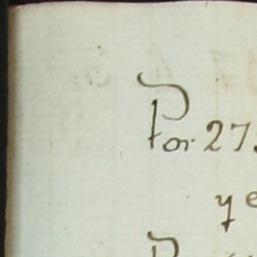 Por 27.
y e
P